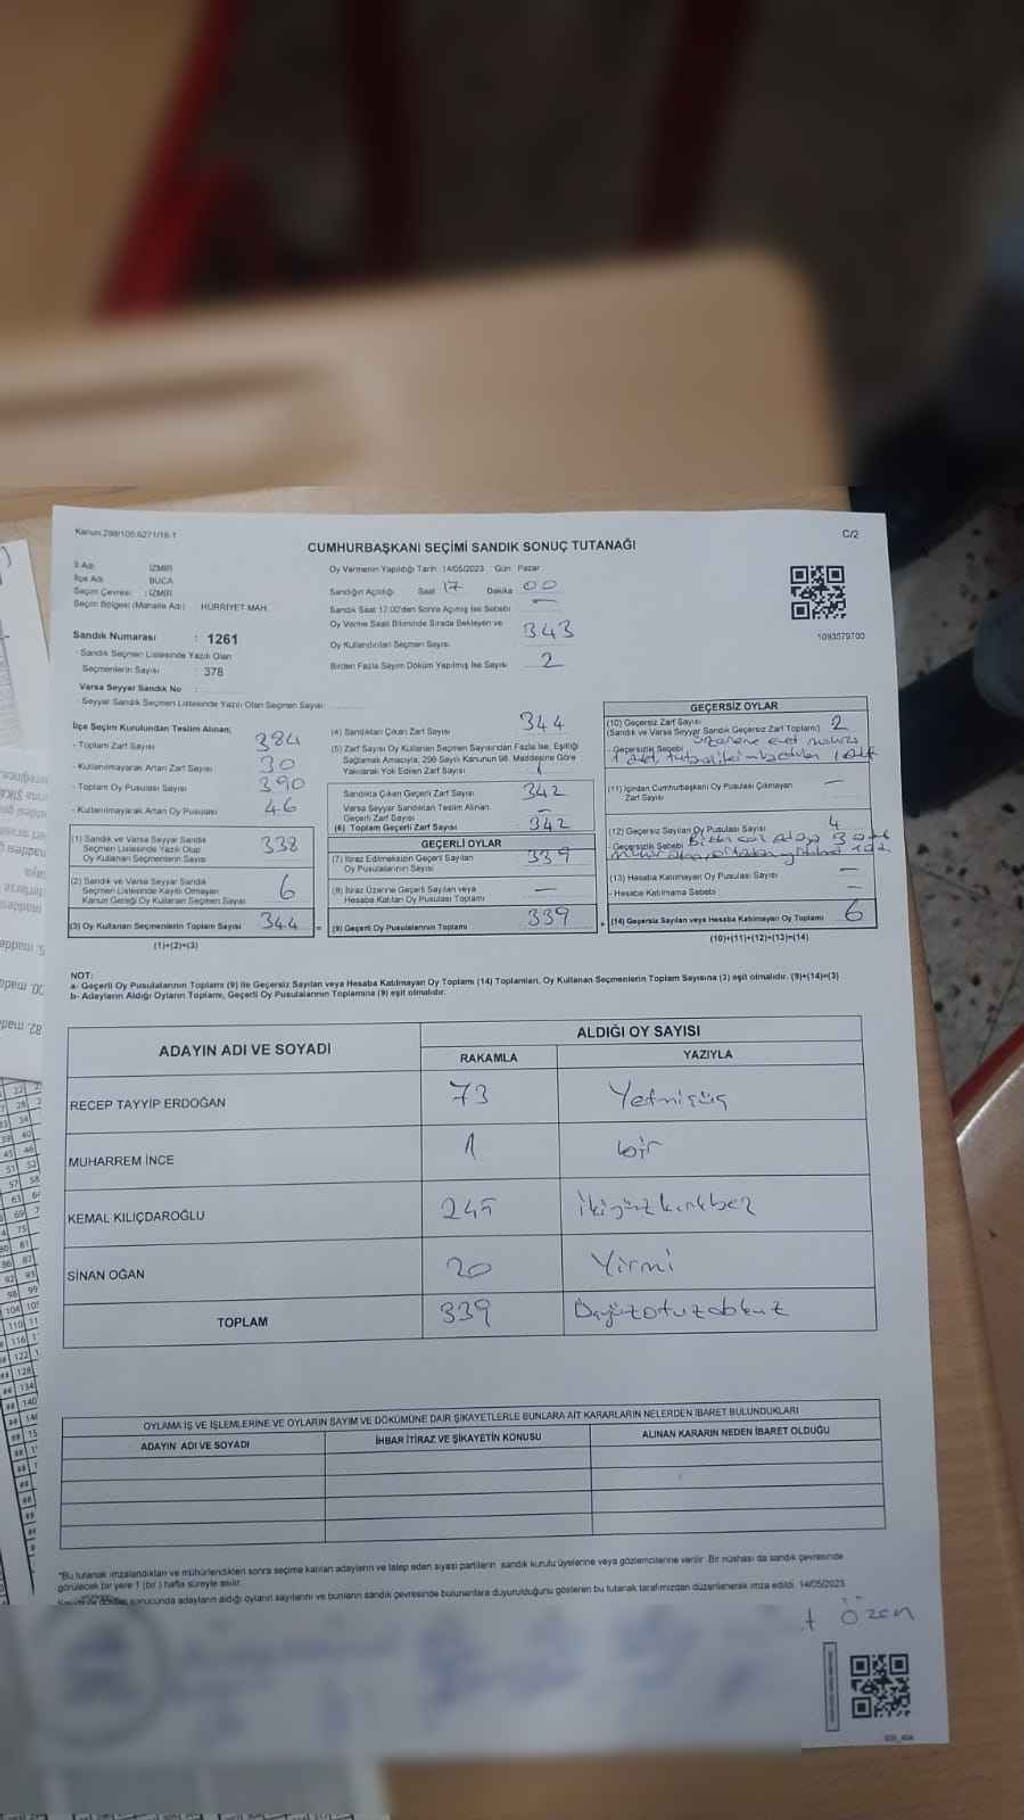 Kanun:298/105;6271/16-1
C/2
CUMHURBAŞKANI SEÇİMİ SANDIK SONUÇ TUTANAĞI
İl Adı : İZMİR
İlçe Adı : BUCA
Seçim Çevresi : İZMİR
Seçim Bölgesi (Mahalle Adı) : HÜRRİYET MAH.
Sandık Numarası : 1261
- Sandık Seçmen Listesinde Yazılı Olan
Seçmenlerin Sayısı : 378
Varsa Seyyar Sandık No :
- Seyyar Sandık Seçmen Listesinde Yazılı Olan Seçmen Sayısı
Oy Vermenin Yapıldığı Tarih : 14/05/2023 Gün: Pazar
Sandığın Açıldığı Saat 17 Dakika 00
Sandık Saat 17:00'den Sonra Açılmış İse Sebebi —
Oy Verme Saati Bitiminde Sırada Bekleyen ve
Oy Kullandırılan Seçmen Sayısı 343
Birden Fazla Sayım Döküm Yapılmış İse Sayısı 2
1093579700
İlçe Seçim Kurulundan Teslim Alınan;
- Toplam Zarf Sayısı 384
- Kullanılmayarak Artan Zarf Sayısı 30
- Toplam Oy Pusulası Sayısı 390
- Kullanılmayarak Artan Oy Pusulası 46
(1) Sandık ve Varsa Seyyar Sandık
Seçmen Listesinde Yazılı Olup
Oy Kullanan Seçmenlerin Sayısı 338
(2) Sandık ve Varsa Seyyar Sandık
Seçmen Listesinde Kayıtlı Olmayan
Kanun Gereği Oy Kullanan Seçmen Sayısı 6
(3) Oy Kullanan Seçmenlerin Toplam Sayısı 344
(1)+(2)=(3)
(4) Sandıktan Çıkan Zarf Sayısı 344
(5) Zarf Sayısı Oy Kullanan Seçmen Sayısından Fazla İse, Eşitliği
Sağlamak Amacıyla, 298 Sayılı Kanunun 98. Maddesine Göre
Yakılarak Yok Edilen Zarf Sayısı
Sandıkta Çıkan Geçerli Zarf Sayısı 342
Varsa Seyyar Sandıktan Teslim Alınan
Geçerli Zarf Sayısı —
(6) Toplam Geçerli Zarf Sayısı 342
GEÇERLİ OYLAR
(7) İtiraz Edilmeksizin Geçerli Sayılan
Oy Pusulalarının Sayısı 339
(8) İtiraz Üzerine Geçerli Sayılan veya
Hesaba Katılan Oy Pusulası Toplamı —
(9) Geçerli Oy Pusulalarının Toplamı 339
GEÇERSİZ OYLAR
(10) Geçersiz Zarf Sayısı 2
(Sandık ve Varsa Seyyar Sandık Geçersiz Zarf Toplamı)
- Geçersizlik Sebebi
(11) İçinden Cumhurbaşkanı Oy Pusulası Çıkmayan
Zarf Sayısı —
(12) Geçersiz Sayılan Oy Pusulası Sayısı 4
- Geçersizlik Sebebi
(13) Hesaba Katılmayan Oy Pusulası Sayısı —
- Hesaba Katılmama Sebebi —
(14) Geçersiz Sayılan veya Hesaba Katılmayan Oy Toplamı 6
(10)+(11)+(12)+(13)=(14)
NOT:
a- Geçerli Oy Pusulalarının Toplamı (9) ile Geçersiz Sayılan veya Hesaba Katılmayan Oy Toplamı (14) Toplamları, Oy Kullanan Seçmenlerin Toplam Sayısına (3) eşit olmalıdır. (9)+(14)=(3)
b- Adayların Aldığı Oyların Toplamı, Geçerli Oy Pusulalarının Toplamına (9) eşit olmalıdır.
ADAYIN ADI VE SOYADI ALDIĞI OY SAYISI
RAKAMLA YAZIYLA
RECEP TAYYİP ERDOĞAN 73 Yetmişüç
MUHARREM İNCE 1 bir
KEMAL KILIÇDAROĞLU 245 İkiyüzkırkbeş
SİNAN OĞAN 20 Yirmi
TOPLAM 339 Üçyüzotuzdokuz
OYLAMA İŞ VE İŞLEMLERİNE VE OYLARIN SAYIM VE DÖKÜMÜNE DAİR ŞİKAYETLERLE BUNLARA AİT KARARLARIN NELERDEN İBARET BULUNDUKLARI
ADAYIN ADI VE SOYADI İHBAR İTİRAZ VE ŞİKAYETİN KONUSU ALINAN KARARIN NEDEN İBARET OLDUĞU
*Bu tutanak imzalandıktan ve mühürlendikten sonra seçime katılan adayların ve talep eden siyasi partilerin sandık kurulu üyelerine veya gözlemcilerine verilir. Bir nüshası da sandık çevresinde
görülecek bir yere 1 (bir) hafta süreyle asılır.
sonucunda adayların aldığı oyların sayılarını ve bunların sandık çevresinde bulunanlara duyurulduğunu gösteren bu tutanak tarafımızdan düzenlenerek imza edildi. 14/05/2023
Özen